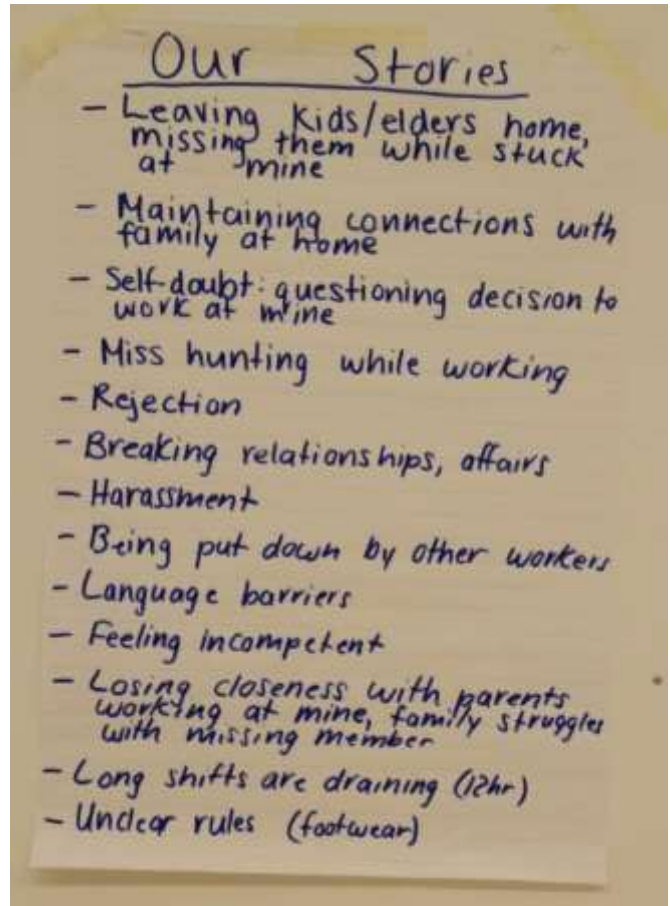 Our Stories
- Leaving kids/elders home,
missing them while stuck
at mine
- Maintaining connections with
family at home
- Self-doubt: questioning decision to
work at mine
- Miss hunting while working
- Rejection
- Breaking relationships, affairs
- Harassment
- Being put down by other workers
- Language barriers
- Feeling incompetent
- Losing closeness with parents
working at mine, family struggles
with missing member
- Long shifts are draining (12hr)
- Unclear rules (footwear)